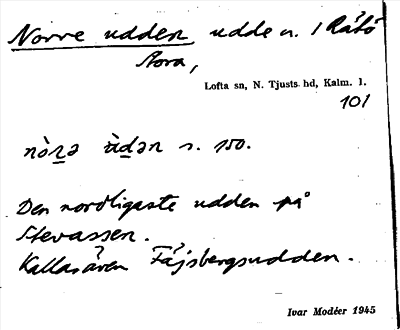 Norre udden, udde n. / Råtö
Stora,
Lofta sn, N. Tjusts hd, Kalm. l.
101
nòṟə ùḏən s. 150.
Den nordligaste udden på
Stevassen.
Kallas även Fäjsbergsudden.
Ivar Modéer 1945